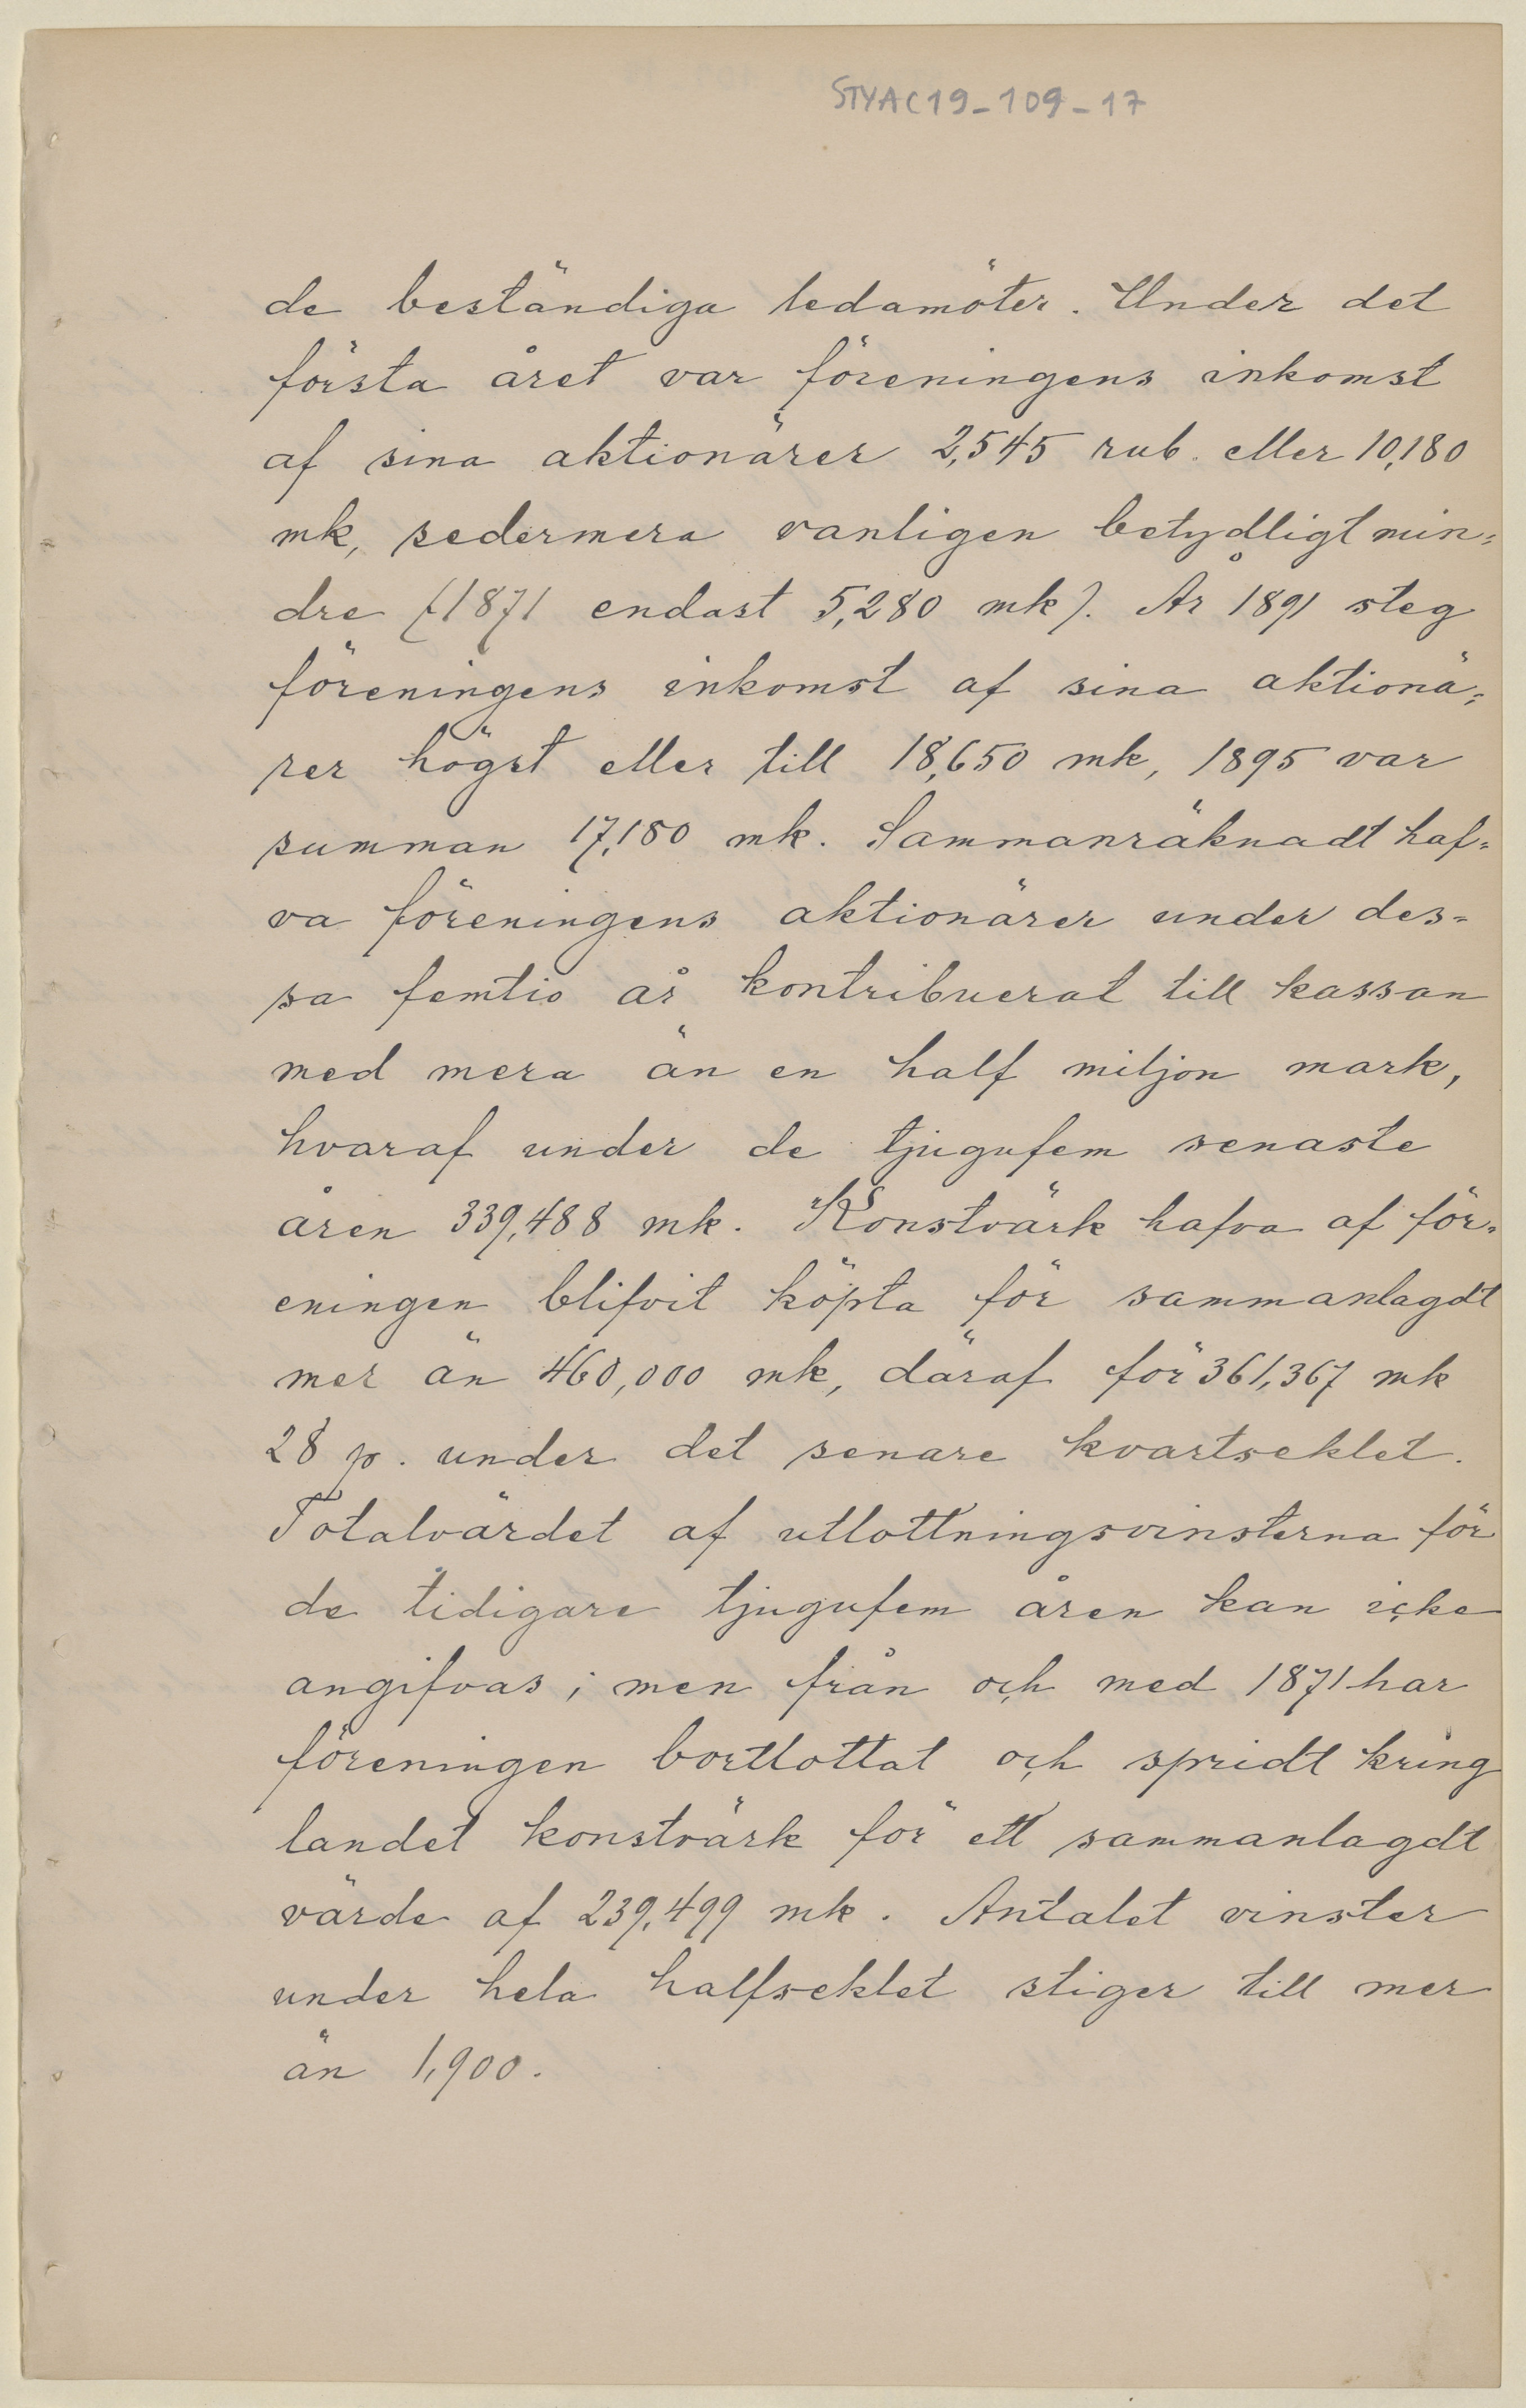 STYAC19-109-17
de beständiga ledamöter. Under det
första året var föreningens inkomst
af sina aktionärer 2,545 rub. eller 10,180
mk, sedermera vanligen betydligt min=
dre (1871 endast 5,280 mk). År 1891 steg
föreningens inkomst af sina aktionä=
rer högst eller till 18,650 mk, 1895 var
summan 17,180 mk. Sammanräknadt haf=
va föreningens aktionärer under des=
sa femtio år kontribuerat till kassan
med mera än en half miljon mark,
hvaraf under de tjugufem senaste
åren 339,488 mk. Konstvärk hafva af för=
eningen blifvit köpta för sammanlagdt
mer än 460,000 mk, däraf för 361,367 mk
28 p. under det senare kvartseklet.
Totalvärdet af utlottningsvinsterna för
de tidigare tjugufem åren kan icke
angifvas; men från och med 1871 har
föreningen bortlottat och spridt kring
landet konstvärk för ett sammanlagdt
värde af 239,499 mk. Antalet vinster
under hela halfseklet stiger till mer
än 1,900.